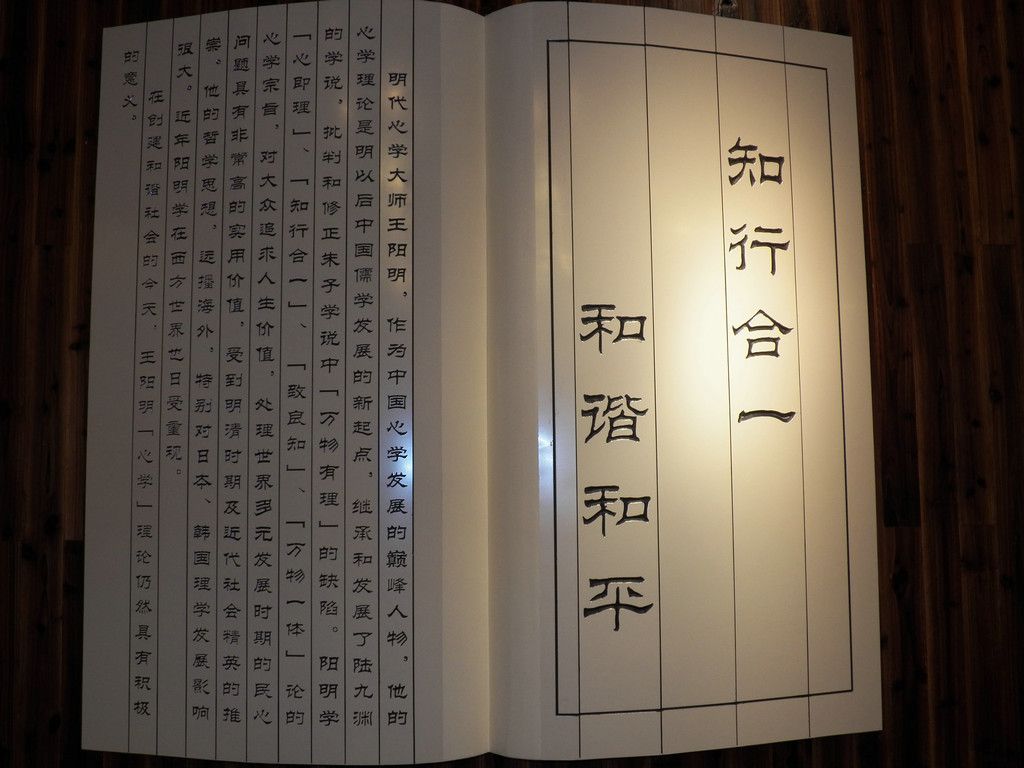 知行合一
和谐和平
明代心学大师王阳明，作为中国心学发展的巅峰人物，他的
心学理论是明以后中国儒学发展的新起点，继承和发展了陆九渊
的学说，批判和修正朱子学说中「万物有理」的缺陷。阳明学
「心即理」、「知行合一」、「致良知」、「万物一体」论的
心学宗旨，对大众追求人生价值，处理世界多元发展时期的民心
问题具有非常高的实用价值，受到明清时期及近代社会精英的推
崇。他的哲学思想，远播海外，特别对日本、韩国理学发展影响
很大。近年阳明学在西方世界也日受重视。
在创建和谐社会的今天，王阳明「心学」理论仍然具有积极
的意义。